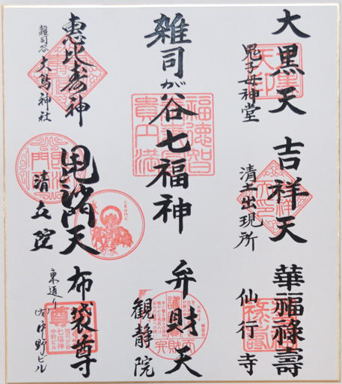 大黒天
鬼子母神堂
吉祥天
清土出現所
華福禄寿
仙行寺
雑司が谷七福神
弁財天
観静院
恵比寿神
雑司谷 大鳥神社
毘沙門天
清立院
布袋尊
東通り
中野ビル